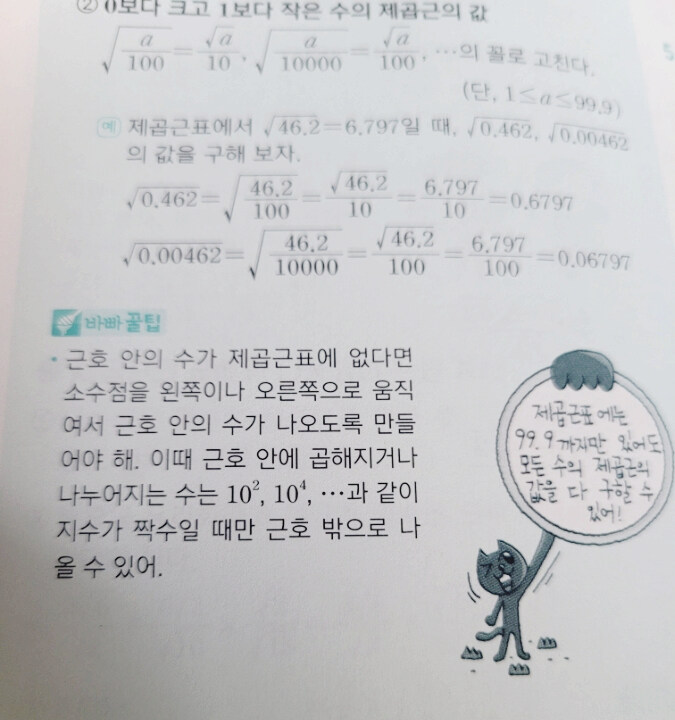 ② 0보다 크고 1보다 작은 수의 제곱근의 값
√(a/100) = √a/10, √(a/10000) = √a/100, …의 꼴로 고친다.
(단, 1≤a≤99.9)
예 제곱근표에서 √46.2=6.797일 때, √0.462, √0.00462
의 값을 구해 보자.
√0.462=√(46.2/100)=√46.2/10=6.797/10=0.6797
√0.00462=√(46.2/10000)=√46.2/100=6.797/100=0.06797
바빠꿀팁
• 근호 안의 수가 제곱근표에 없다면
소수점을 왼쪽이나 오른쪽으로 움직
여서 근호 안의 수가 나오도록 만들
어야 해. 이때 근호 안에 곱해지거나
나누어지는 수는 10², 10⁴, …과 같이
지수가 짝수일 때만 근호 밖으로 나
올 수 있어.
제곱근표에는
99.9까지만 있어도
모든 수의 제곱근의
값을 다 구할 수
있어!